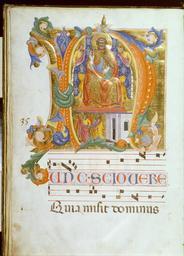 NUNC·SCIO VERE
Quia misit dominus